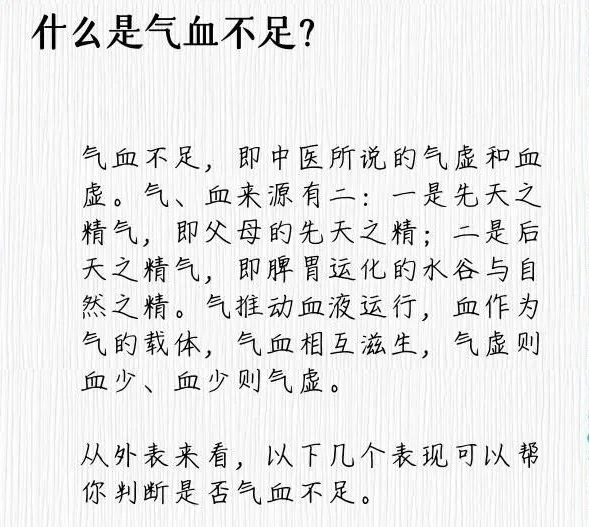 什么是气血不足？
气血不足，即中医所说的气虚和血
虚。气、血来源有二：一是先天之
精气，即父母的先天之精；二是后
天之精气，即脾胃运化的水谷与自
然之精。气推动血液运行，血作为
气的载体，气血相互滋生，气虚则
血少、血少则气虚。
从外表来看，以下几个表现可以帮
你判断是否气血不足。